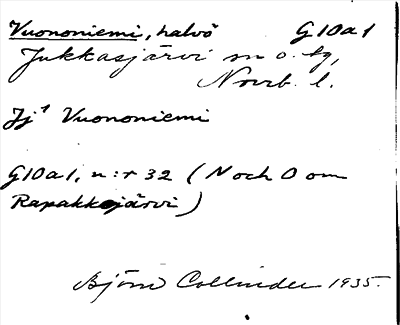 Vuononiemi, halvö G10a1
Jukkasjärvi sn o. lg,
Norrb. l.
Jj¹ Vuononiemi
G10a1, n:r 32 (N och O om
Rapakkojärvi)
Björn Collinder 1935.